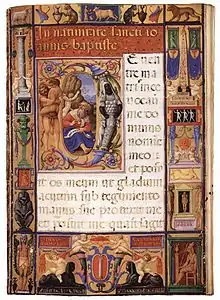 In nativitate sancti io
annis baptiste
E ven
tre ma
tris mee
vocavi
me do
minus
nomine
meo: et
posu
it os meum ut gladium
acutum sub tegumento
manus sue protexit me
et posuit me quasi sagit